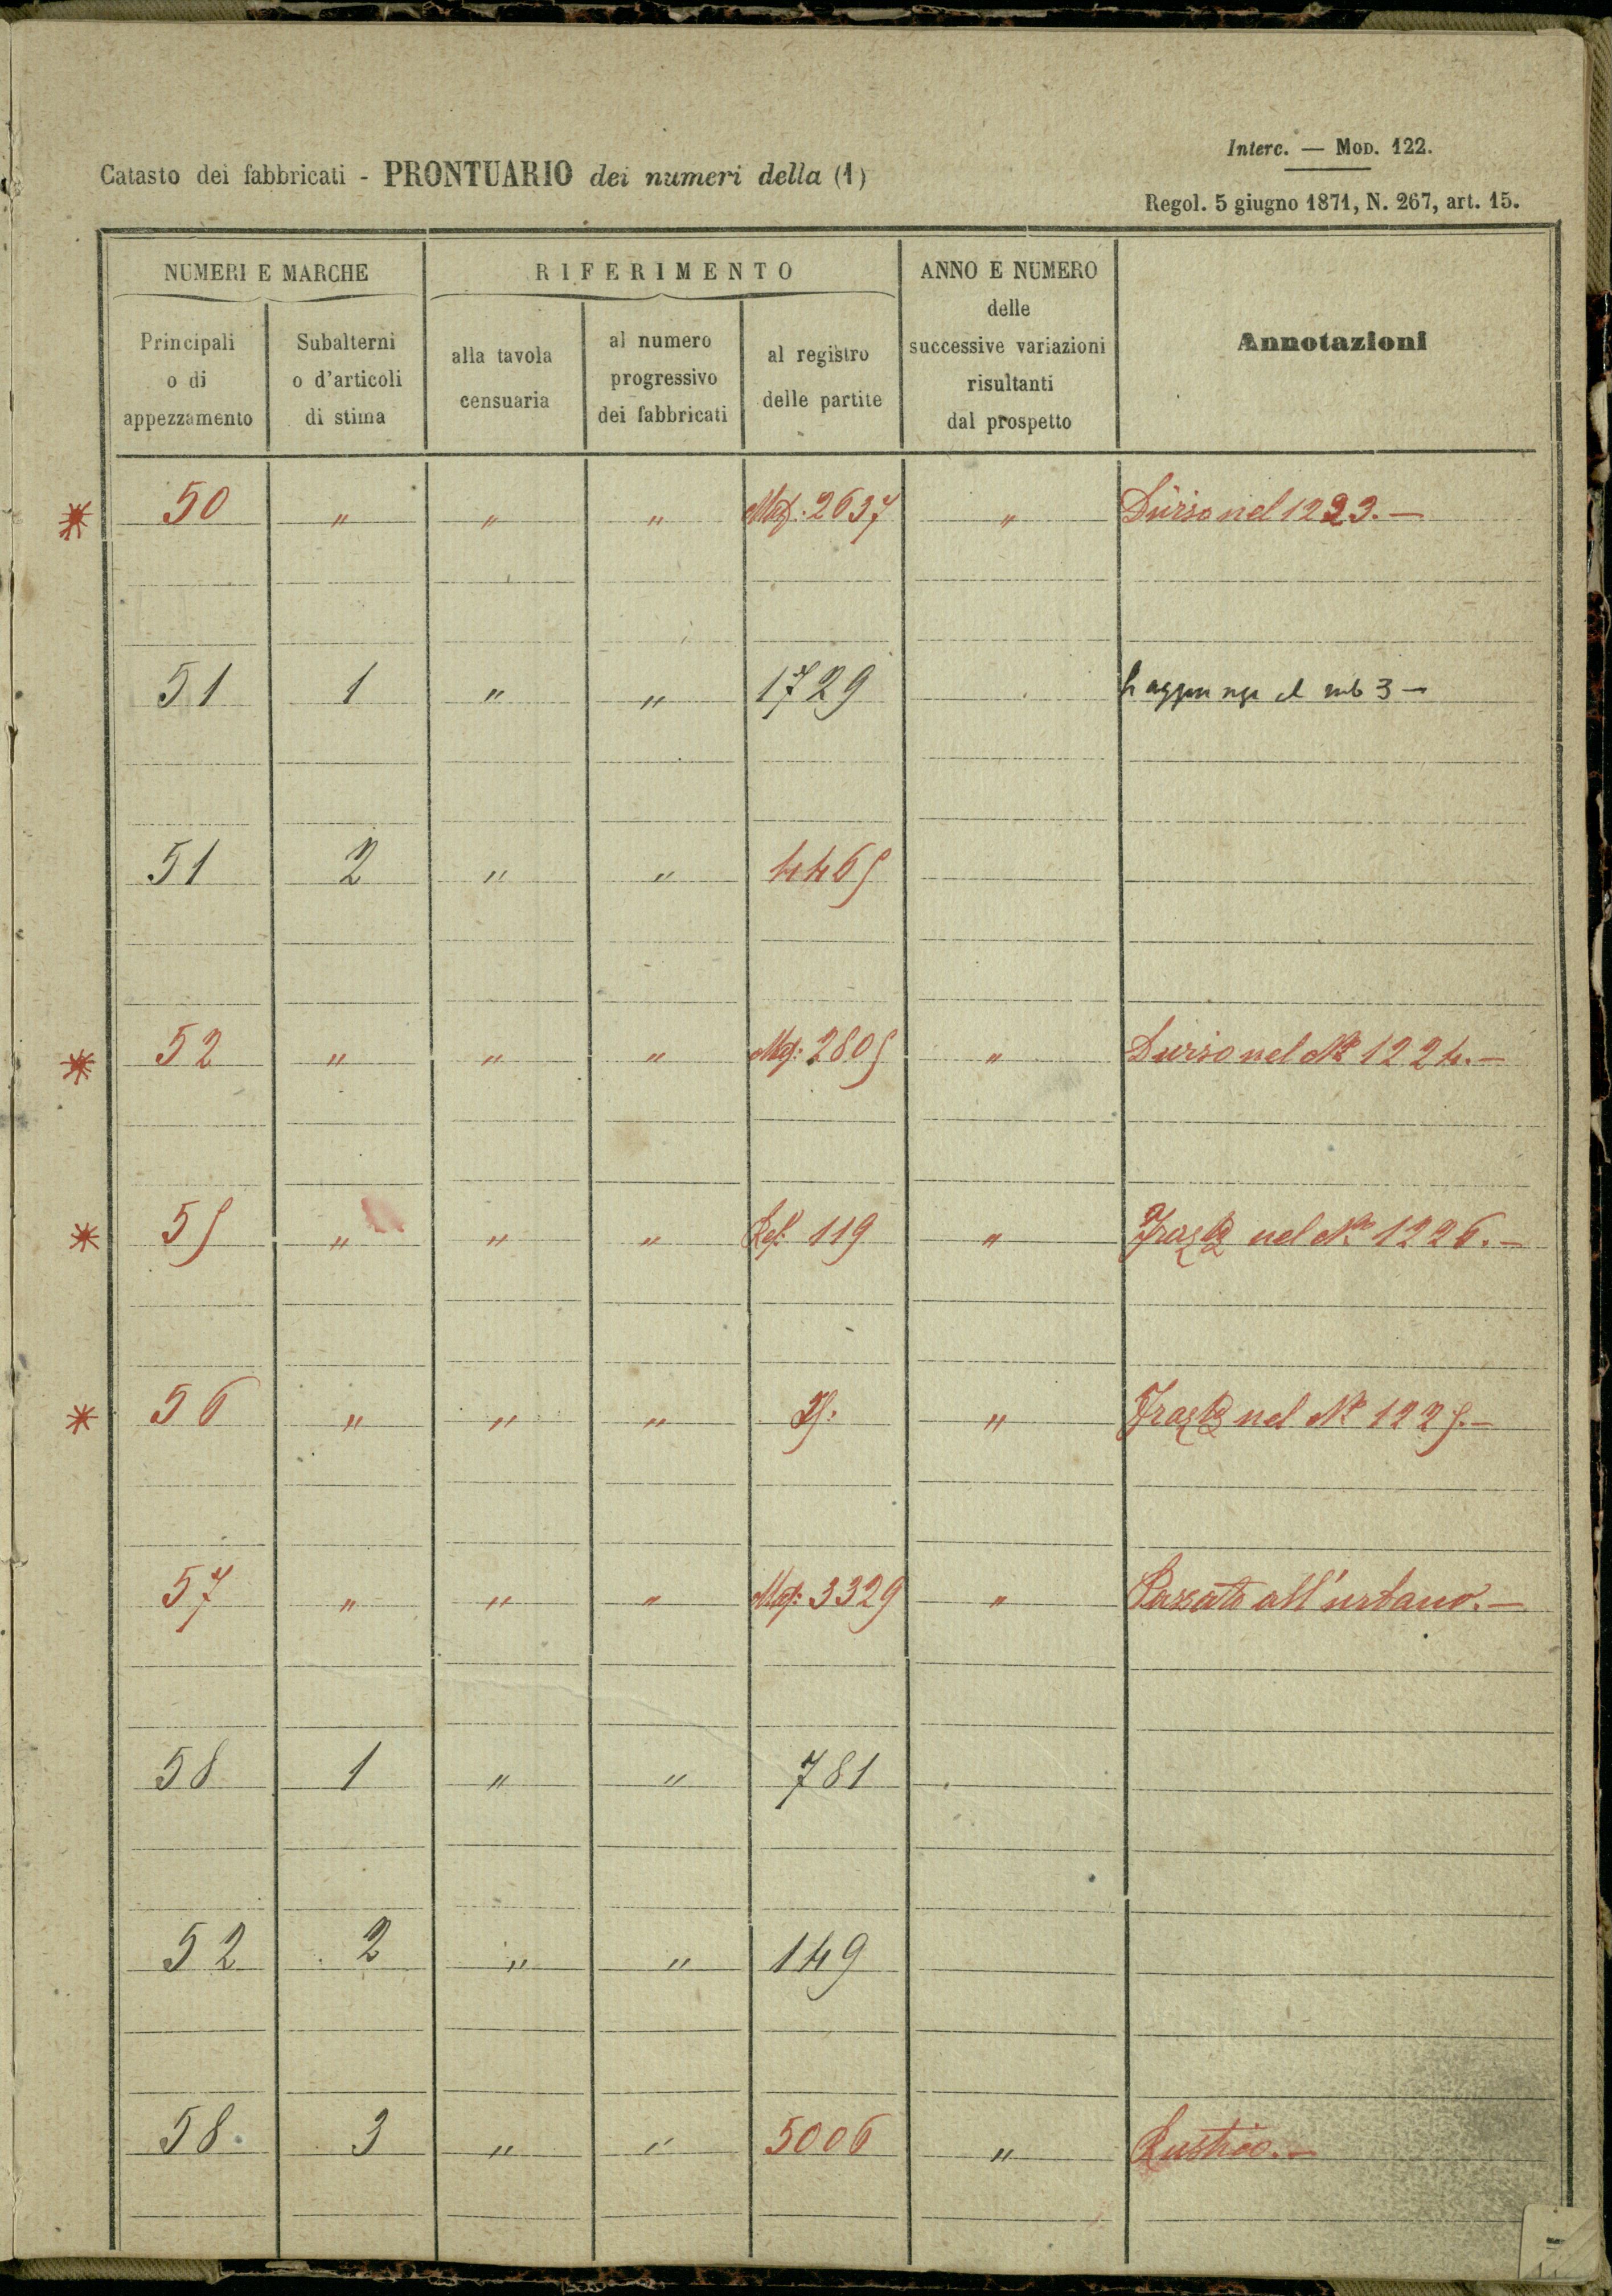 Interc. — MOD. 122.
Catasto dei fabbricati - PRONTUARIO dei numeri della (1)
Regol. 5 giugno 1871, N. 267, art. 15.
NUMERI E MARCHE RIFERIMENTO ANNO E NUMERO delle successive variazioni risultanti dal prospetto Annotazioni
Principali o di appezzamento Subalterni o d'articoli di stima alla tavola censuaria al numero progressivo dei fabbricati al registro delle partite
* 50 " " " 2637 " nel 1223. —
51 1 " " 1729 sub 3 —
51 2 " " 4465
* 52 " " " 2805 " nel N° 1224. —
* 55 " " " 119 " nel N° 1226. —
* 56 " " " " nel N° 1225. —
57 " " " 3329 " Passato all'urbano. —
58 1 " " 781
52 2 " " 149
58 3 " " 5006 " Rustico. —